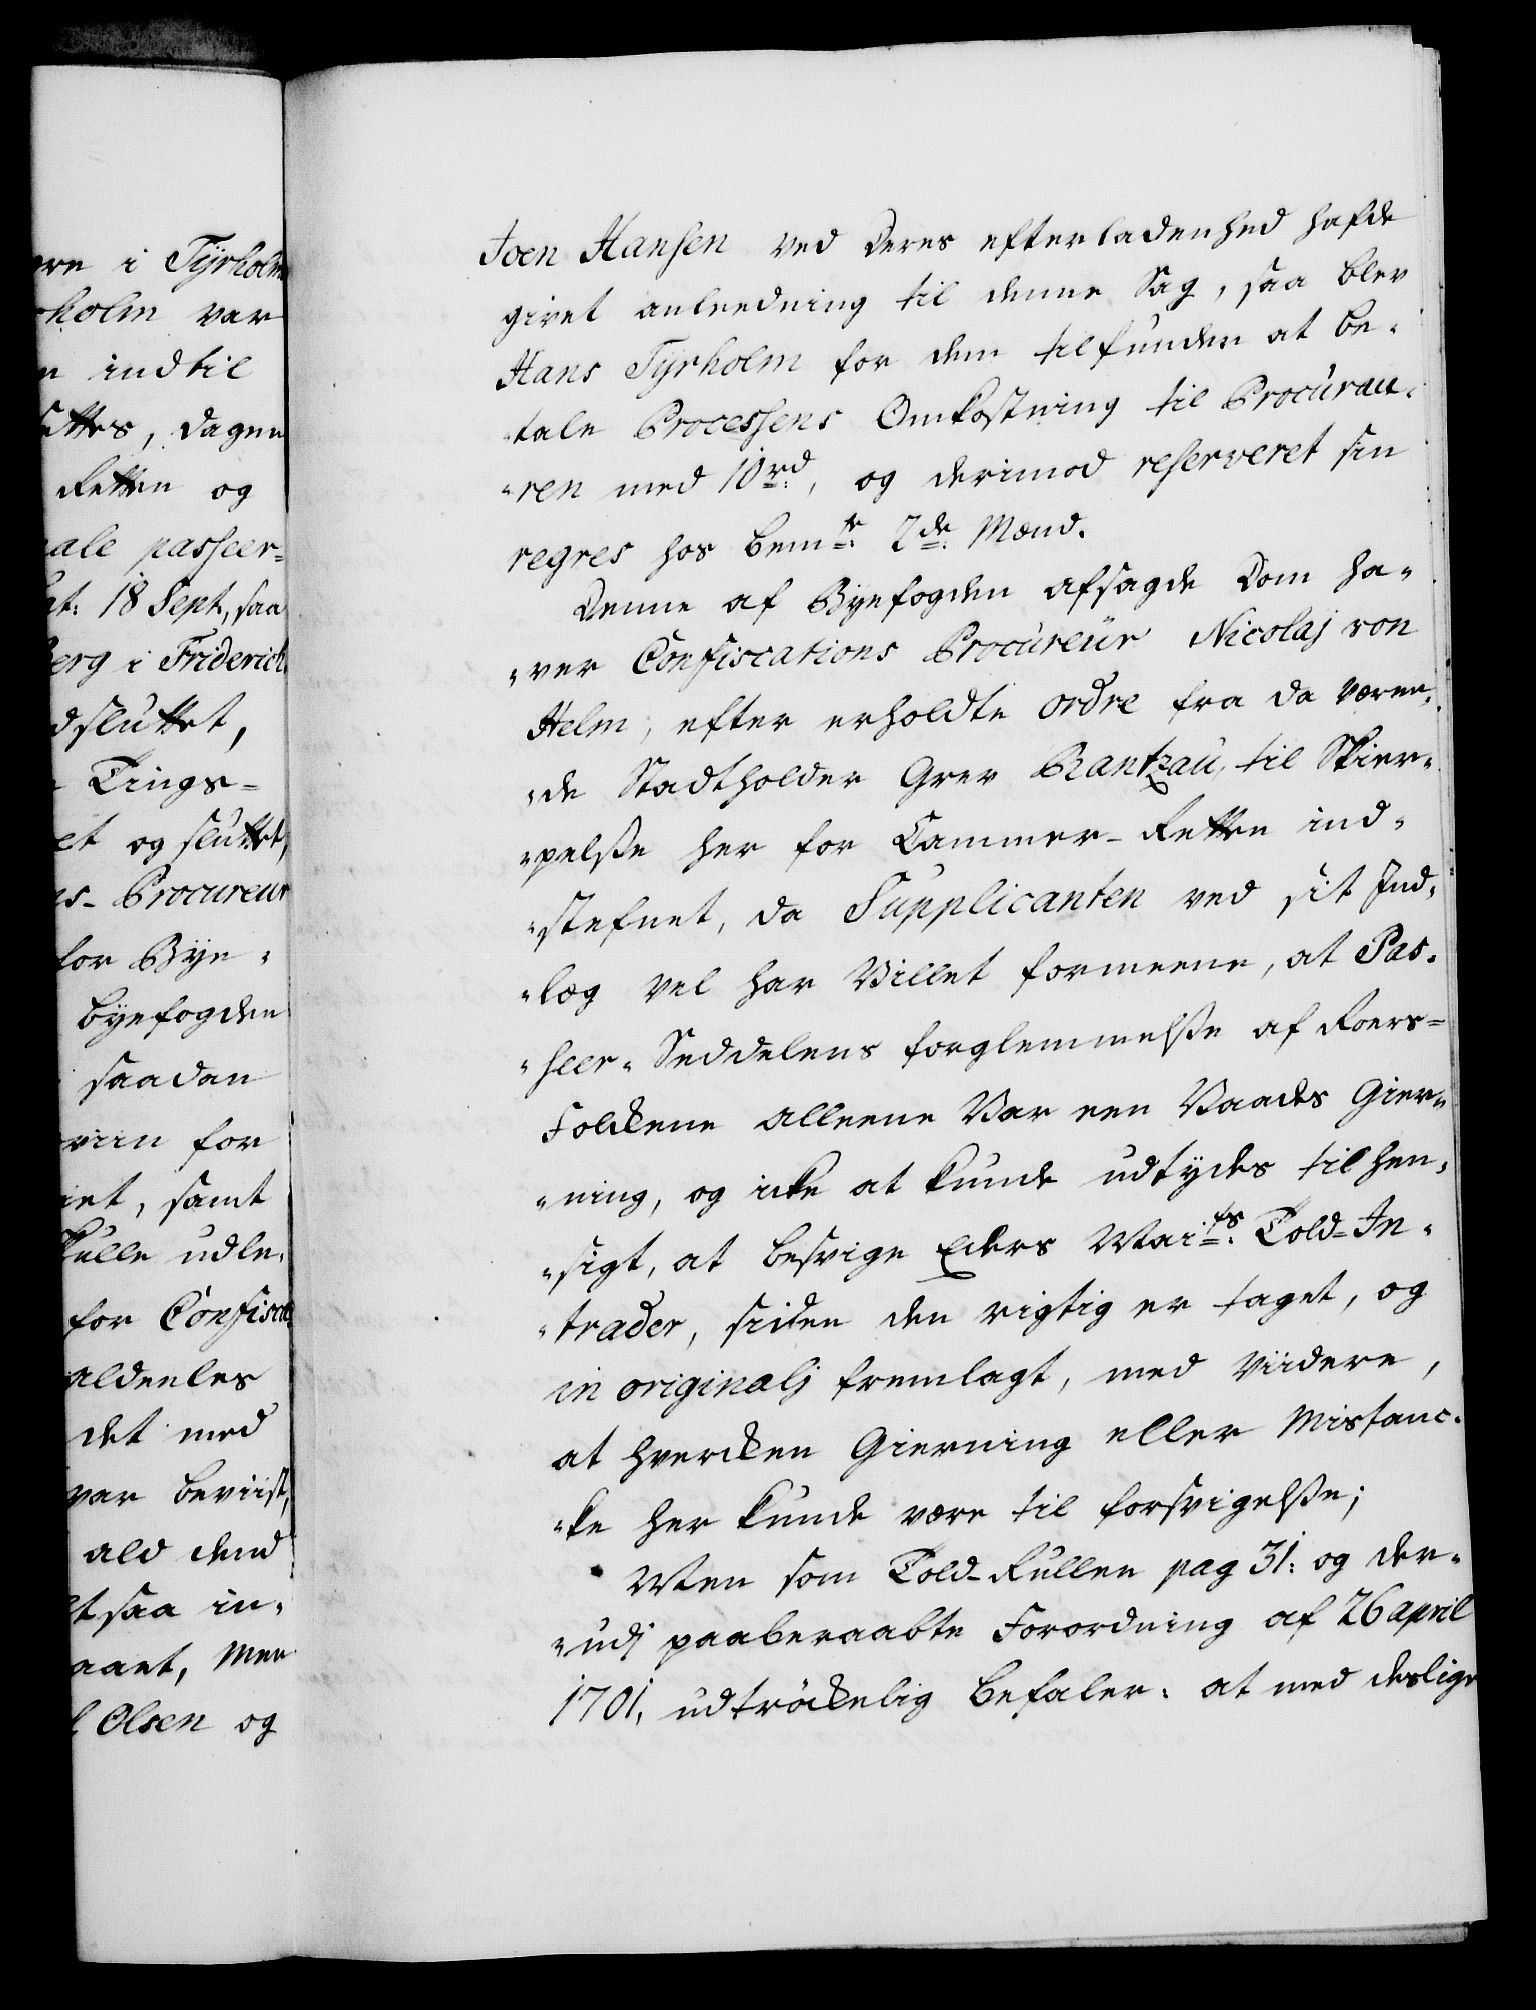 ere i Tÿrholm
rholm var
n indtil
ttes, dagen
Retten og
ale passeer-
at: 18 Sept, saa
berg i Friderich
dsluttet,
Tings-
et og sluttet,
ns- Procureur
for Bÿe-
bÿefogden
saadan
viin for
iet, samt
kulle udle-
for Confisca
aldeeles
det med
var beviist,
ald dend
tsaa in-
aaet, Men
l Olsen og
Joen Hansen ved deres efterladenhed hafde
givet anleedning til denne Sag, saa blev
Hans Tÿrholm for dem tilfunden at be-
-tale Processens Omkostning til Procurau-
-ren med 10 rd, og derimod reserveret sin
regres hos bemte 2de Mænd.
Denne af Bÿefogden afsagde Dom ha-
-ver Confiscations Procureur Nicolaj von
Helm, efter erholdte ordre fra da væren-
-de Stadtholder Grev Rantzau, til Skier-
-pelsse her for Cammer-Retten ind-
-stefnet, da Supplicanten ved sit Ind-
-læg vel har Villet formeene, at Pas-
-seer-Seddelens forglemmelsse af Roers-
Folckene alleene Var een Vaades Gier-
-ning, og icke at kunde udtÿdes til hen-
-sigt, at besvige Eders Maits Told-In-
-trader, siden den rigtig er taget, og
in originalj fremlagt, med Viidere,
at hvercken Gierning eller Mistanc-
-ke her kunde være til forsvigelsse;
Men som Told-Rullen pag 31: og der-
-udj paaberaabte Forordning af 26 april
1701, udtröckelig befaler: at med deslige